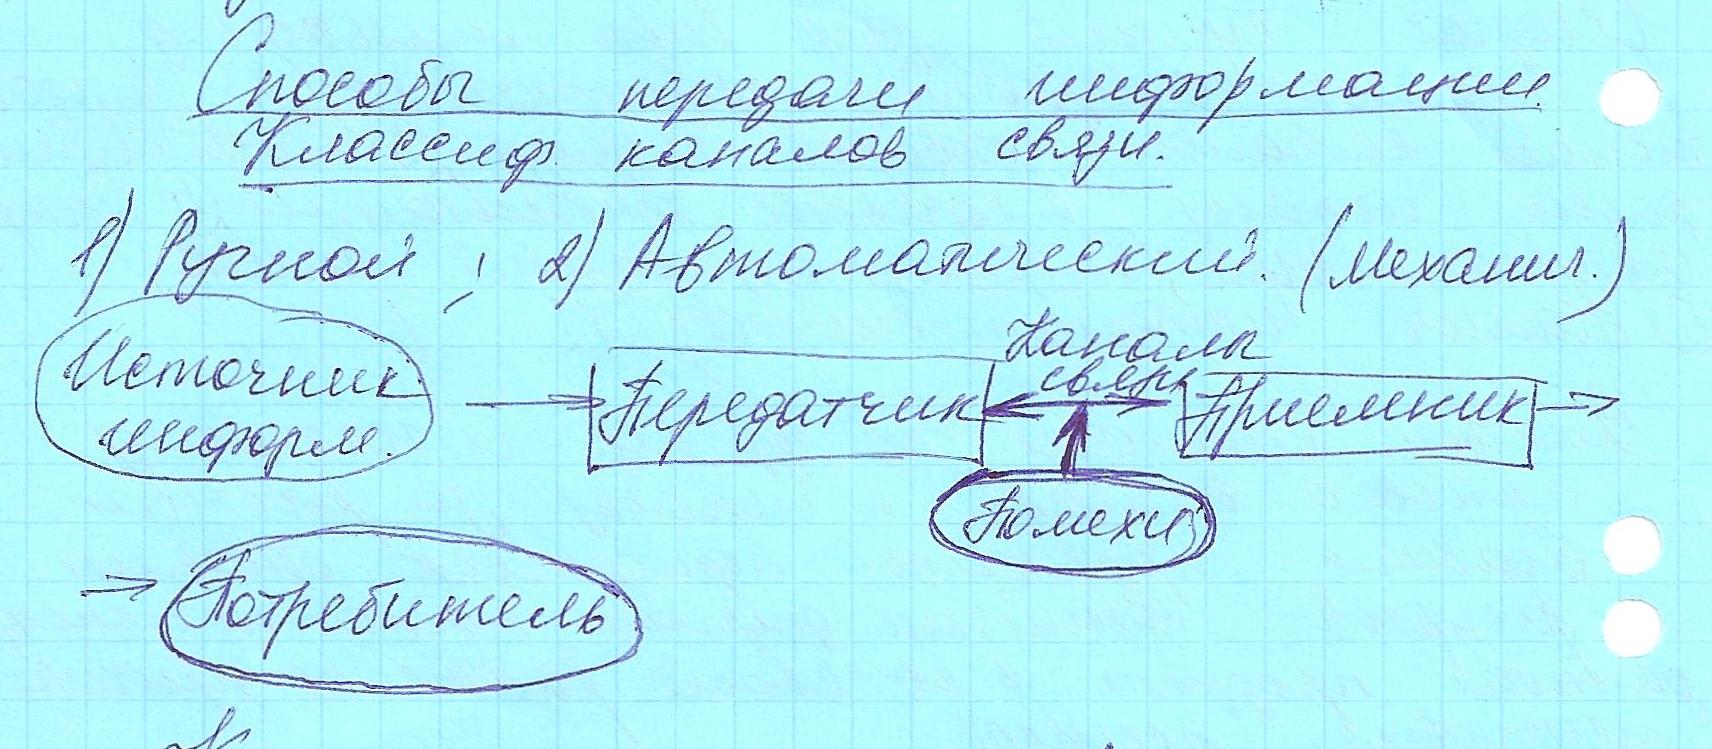 Способы передачи информации.
Классиф. каналов связи.
1) Ручной; 2) Автоматический. (механич.)
Источник информ.
Передатчик
Каналы связи
Приемник
Помехи
Потребитель